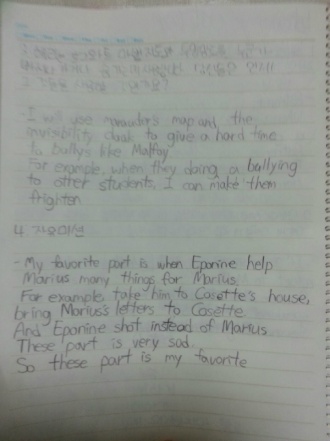 - I will use marauder's map and the
invisibility cloak to give a hard time
to bullys like Malfoy
For example, when they doing a bullying
to other students, I can make them
frighten
4. 자유미션
- My favorite part is when Eponine help
Marius many things for Marius.
For example, take him to Cosette's house,
bring Marius's letters to Cosette
And Eponine shot instead of Marius
These part is very sad.
So these part is my favorite